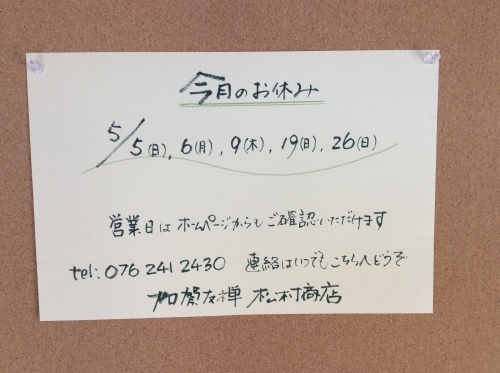 今月のお休み
5/5(日), 6(月), 9(木), 19(日), 26(日)
営業日は ホームページからもご確認いただけます
tel: 076 241 2430 連絡はいつでもこちらへどうぞ
加賀友禅 松村商店